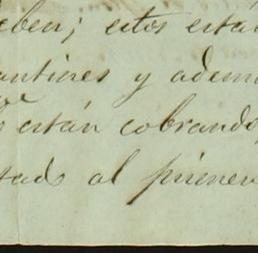 eben; estos está
antires y adem
están cobrando,
tado al primer